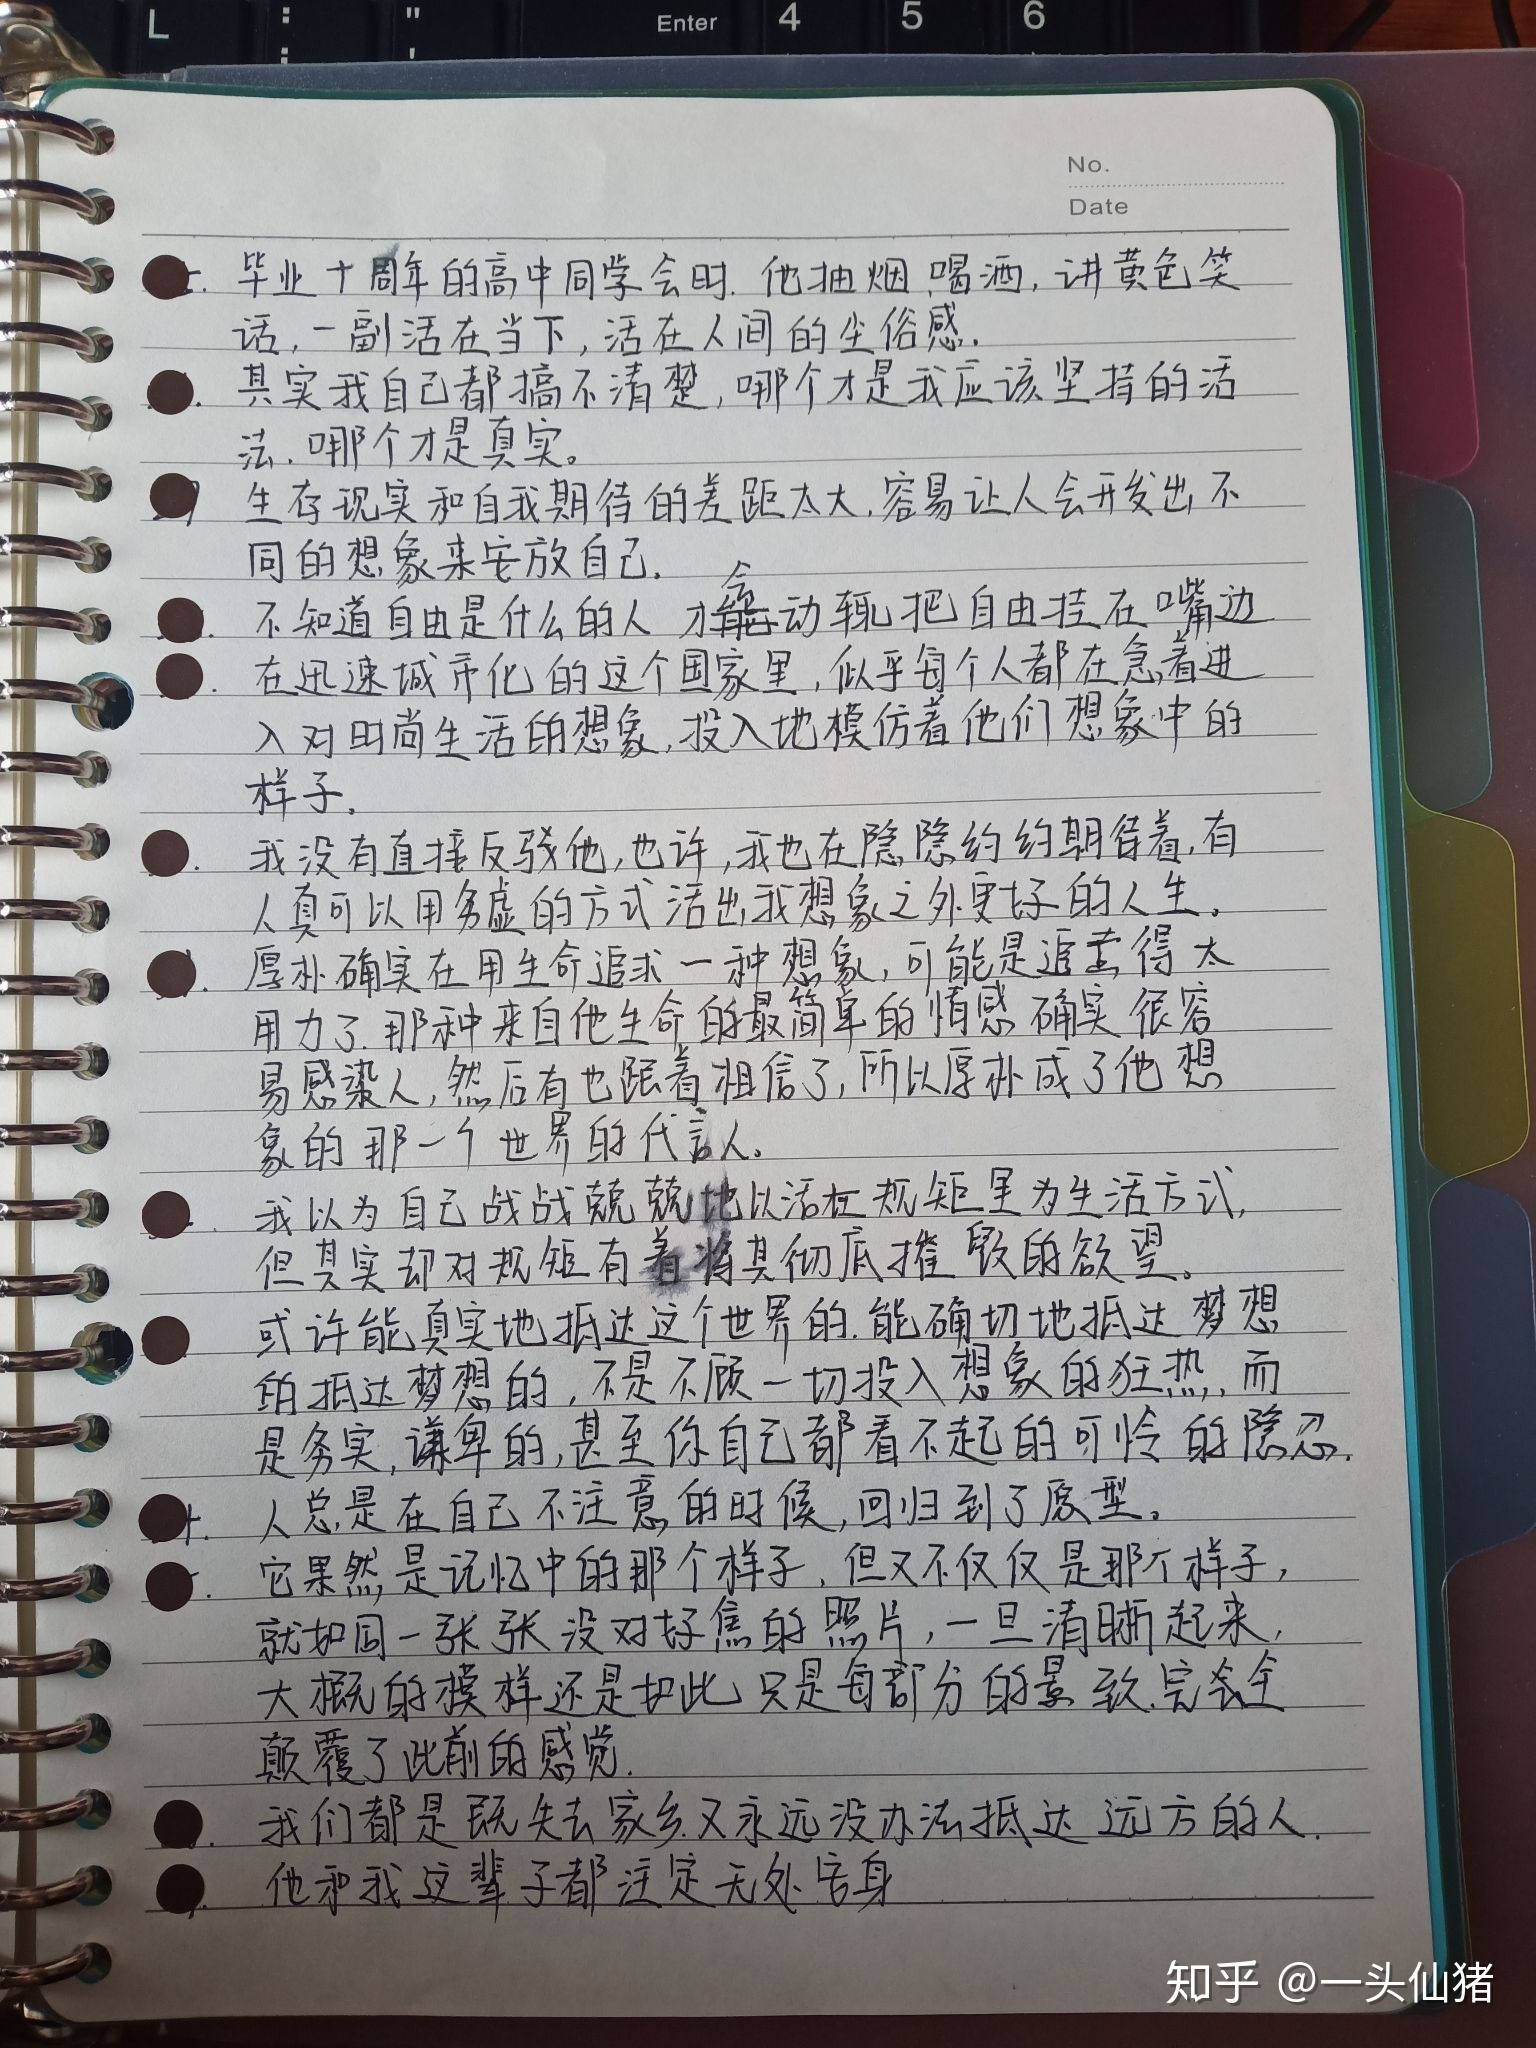 L
:
;
"
'
Enter
4
5
6
No.
Date
毕业十周年的高中同学会时.他抽烟、喝酒,讲黄色笑
话,一副活在当下,活在人间的尘俗感.
其实我自己都搞不清楚,哪个才是我应该坚持的活
法.哪个才是真实。
生存现实和自我期待的差距太大.容易让人会开发出不
同的想象来安放自己.
会
不知道自由是什么的人 才能动辄把自由挂在嘴边
在迅速城市化的这个国家里,似乎每个人都在急着进
入对时尚生活的想象,投入地模仿着他们想象中的
样子.
我没有直接反驳他,也许,我也在隐隐约约期待着,有
人真可以用务虚的方式活出我想象之外更好的人生。
厚朴确实在用生命追求一种想象,可能是追求得太
用力了.那种来自他生命的最简单的情感确实很容
易感染人,然后有也跟着相信了,所以厚朴成了他想
象的那一个世界的代言人.
我以为自己战战兢兢地以活在规矩里为生活方式,
但其实却对规矩有着将其彻底摧毁的欲望。
或许能真实地抵达这个世界的.能确切地抵达梦想
的抵达梦想的,不是不顾一切投入想象的狂热,而
是务实,谦卑的,甚至你自己都看不起的可怜的隐忍.
人总是在自己不注意的时候,回归到了原型。
它果然是记忆中的那个样子,但又不仅仅是那个样子,
就如同一张张没对好焦的照片,一旦清晰起来,
大概的模样还是如此 只是每部分的景致.完全
颠覆了此前的感觉.
我们都是既失去家乡又永远没办法抵达远方的人.
他和我这辈子都注定无处容身
知乎 @一头仙猪